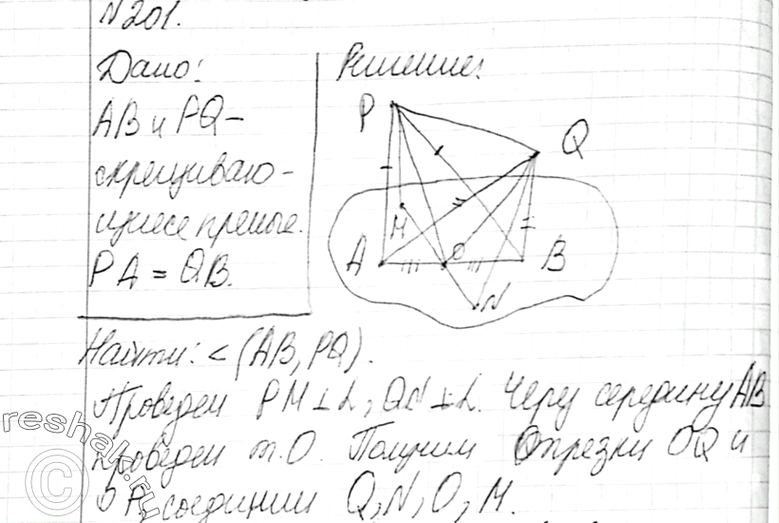 N201.
Дано:
Решение:
AB и PQ –
скрещиваю-
щиеся прямые.
PA = QB.
P
Q
M
A
O
B
N
Найти: < (AB, PQ).
Проведем PM ⊥ α, QN ⊥ α. Через середину AB
проведем т.O. Получим отрезки OQ и
OP, соединим Q, N, O, M.
reshak.ru
©